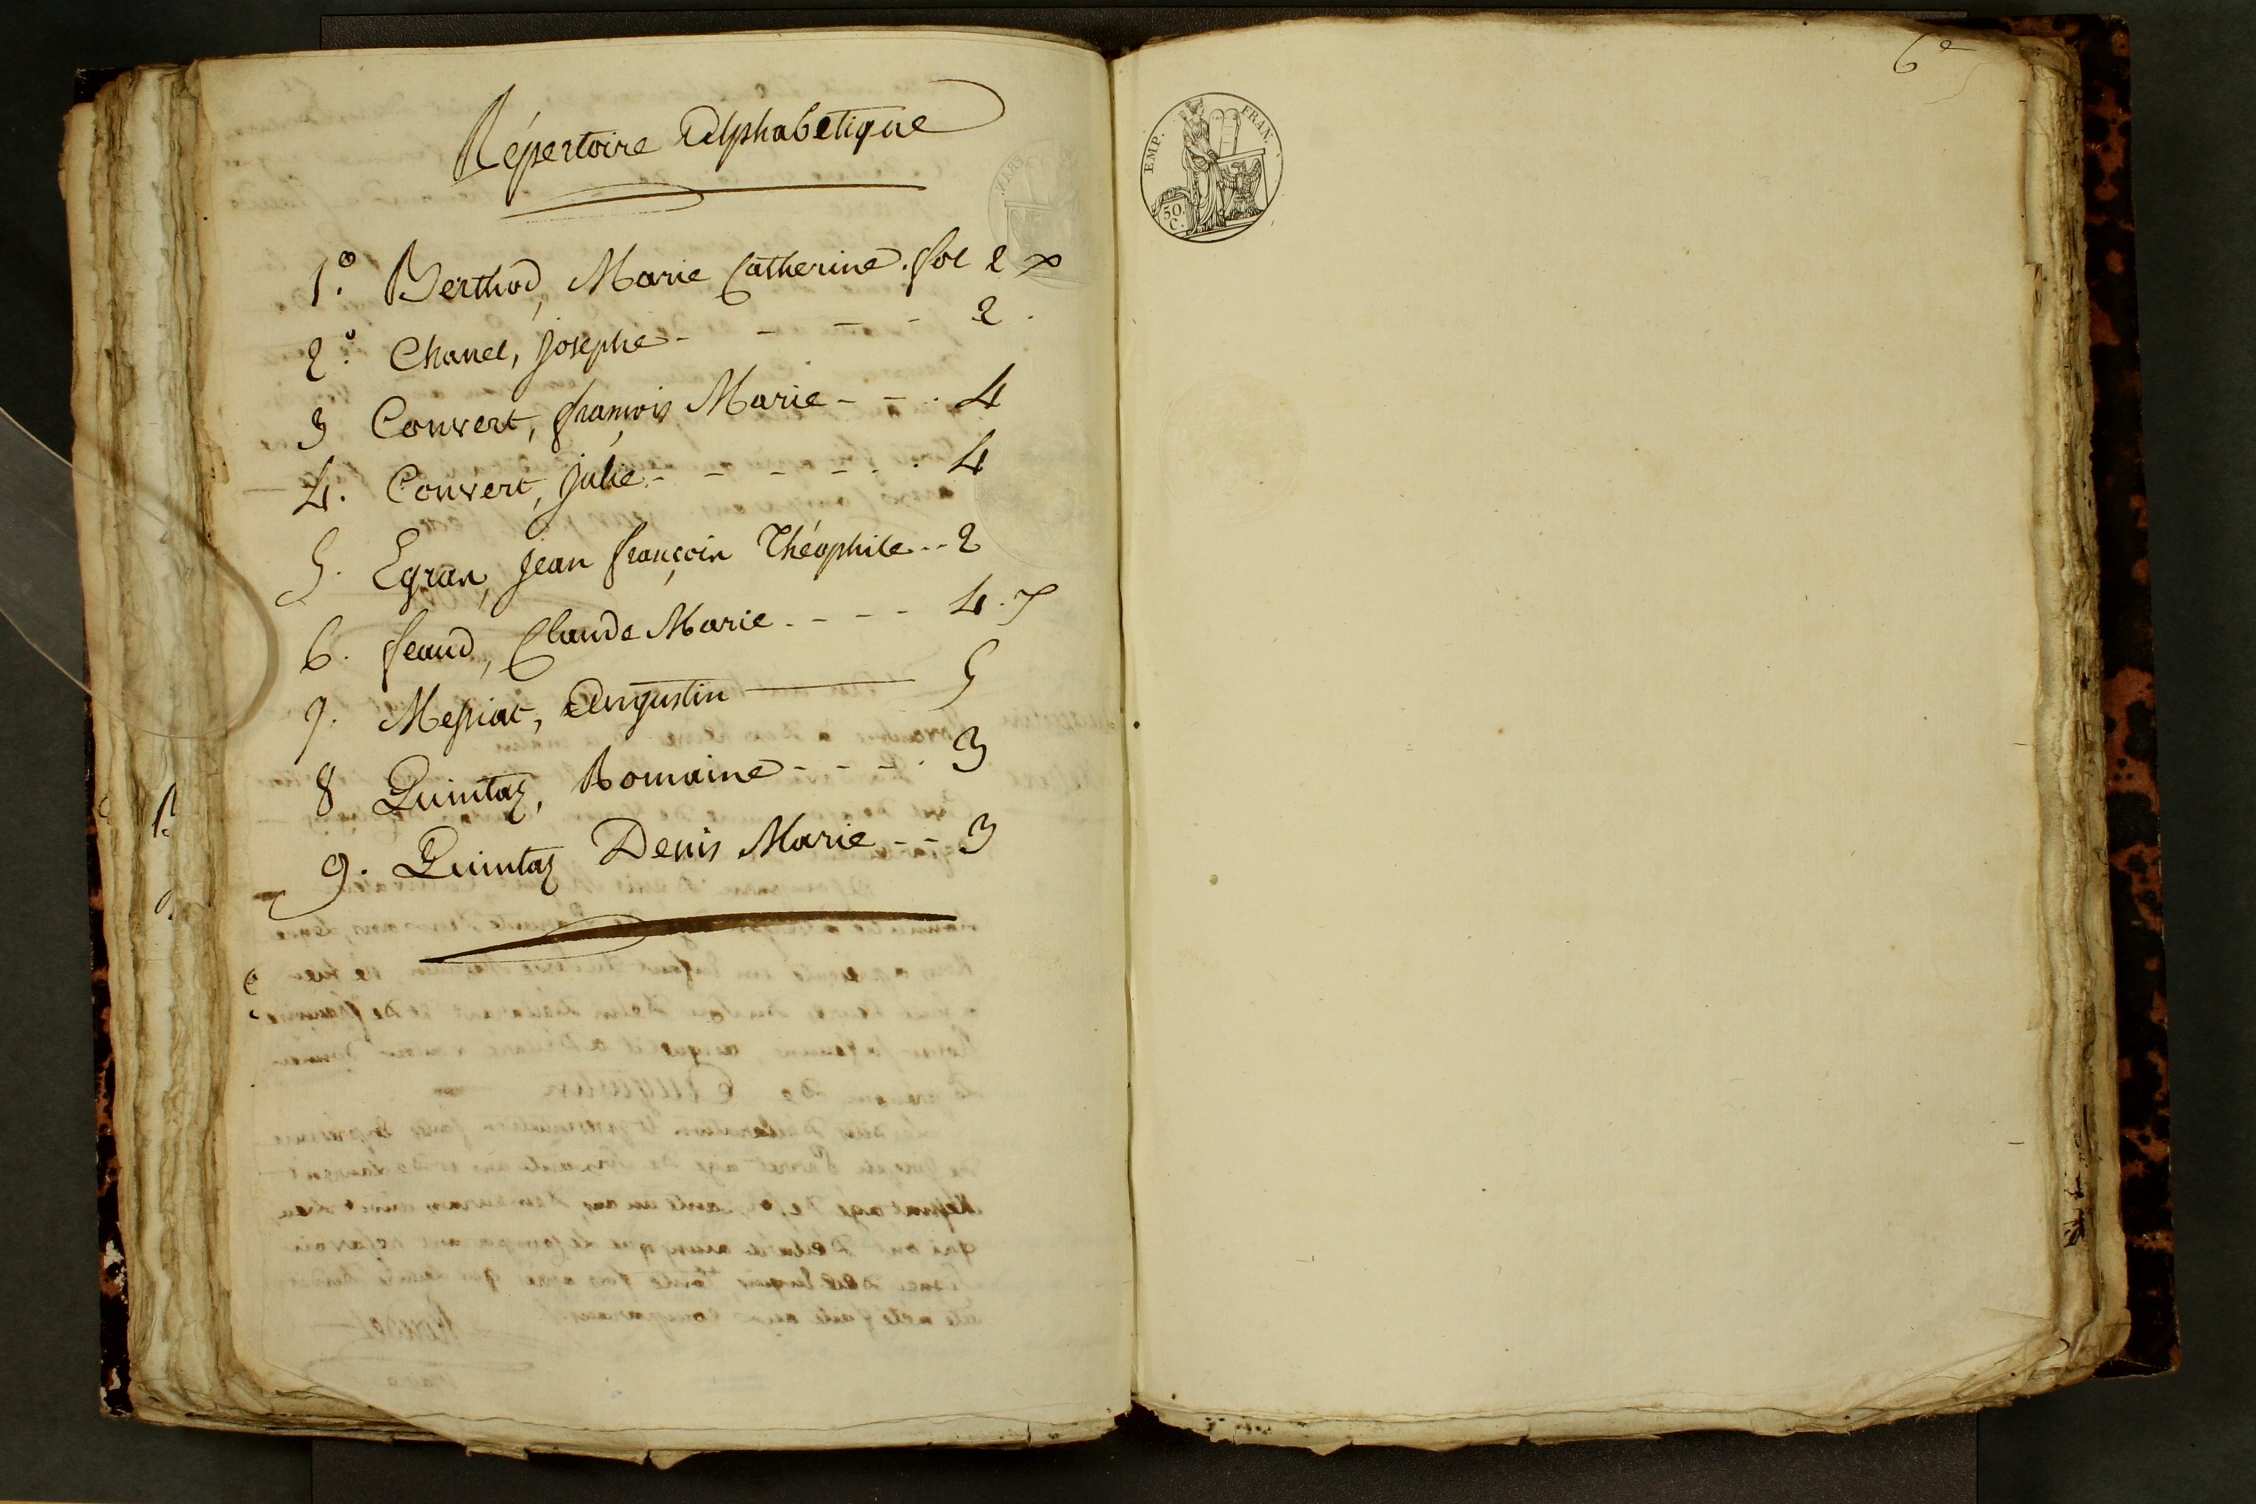 Répertoire Alphabetique
1.° Berthod, Marie Catherine. fol 2
2.° Chanel, Josephe - - - - 2.
3 Convert, françois Marie - - . 4
4. Convert, Julie - - - - - . 4
5. Egran, Jean françois Théophile - - 2
6. feaud, Claude Marie - - - - 4.
7. Messiat, Augustin — 5
8 Quintaz, Romaine - - - . 3
9. Quintaz Denis Marie - - 3
6e
EMP. FRAN.
50.
C.